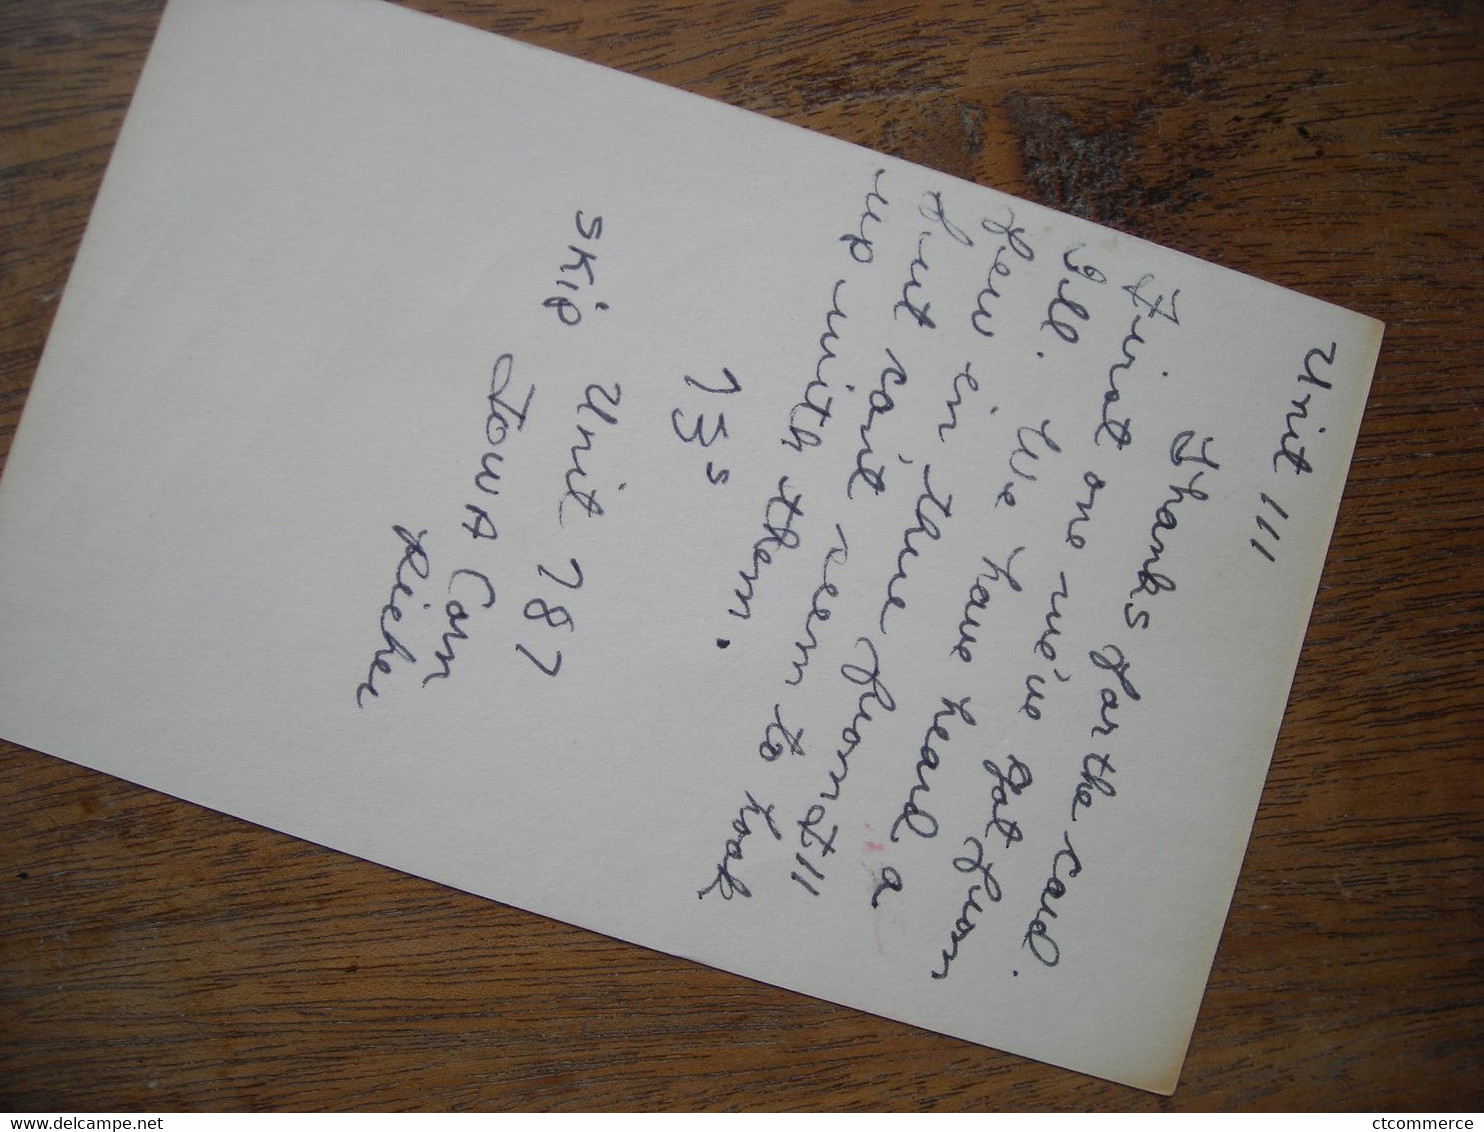 Unit 111
Thanks for the card.
First one we've got from
Ill. We have heard a
few in there from Ill
but can't seem to hook
up with them.
73s
Skip Unit 787
Iowa Corn
Picker
www.delcampe.net
ctcommerce